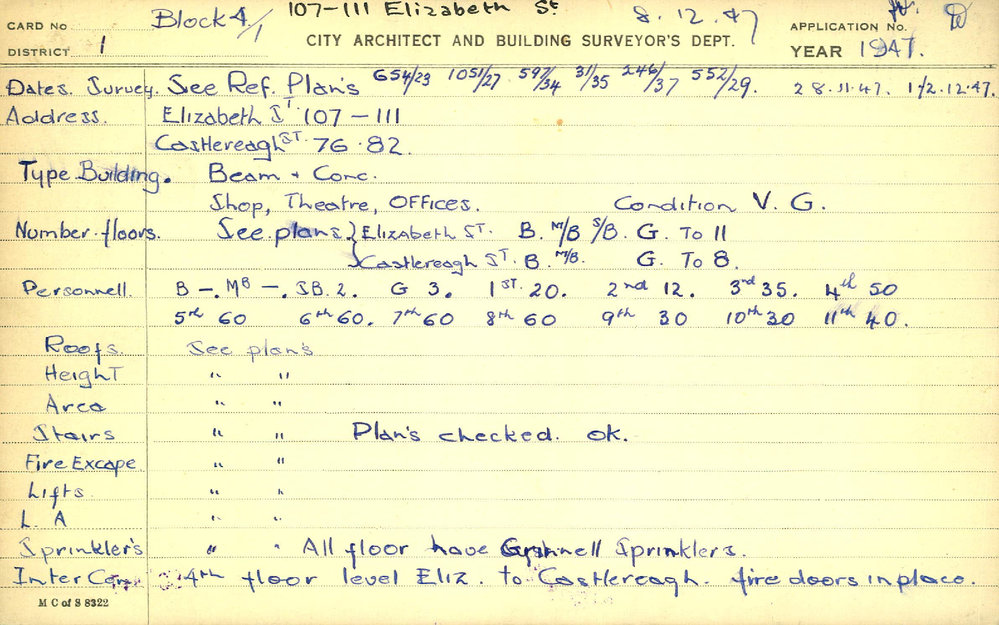 CARD No Block 4/1 107-111 Elizabeth St 8.12.47 APPLICATION No.
DISTRICT 1 CITY ARCHITECT AND BUILDING SURVEYOR'S DEPT. YEAR 1947.
Dates. Survey. See Ref. Plan's 654/23 1051/27 597/34 31/35 246/37 552/29. 28.11.47. 1/2.12.47.
Address. Elizabeth ST. 107 - 111
Castlereagh ST. 76.82.
Type Building. Beam + Conc.
Shop, Theatre, Offices. Condition V. G.
Number floors. See plans } Elizabeth ST. B. M/B S/B. G. To 11
Castlereagh ST. B. M/B. G. To 8.
Personnell. B -. MB -. SB. 2. G 3. 1ST. 20. 2nd 12. 3rd 35. 4th 50
5th 60 6th 60. 7th 60 8th 60 9th 30 10th 30 11th 40.
Roofs. See plan's
Height " "
Area " "
Stairs " " Plan's checked. ok.
Fire Excape " "
Lifts " "
L. A " "
Sprinkler's " " All floor have Grinnell Sprinklers.
Inter Com 4th floor level Eliz. to Castlereagh. fire doors in place.
M C of S 8322